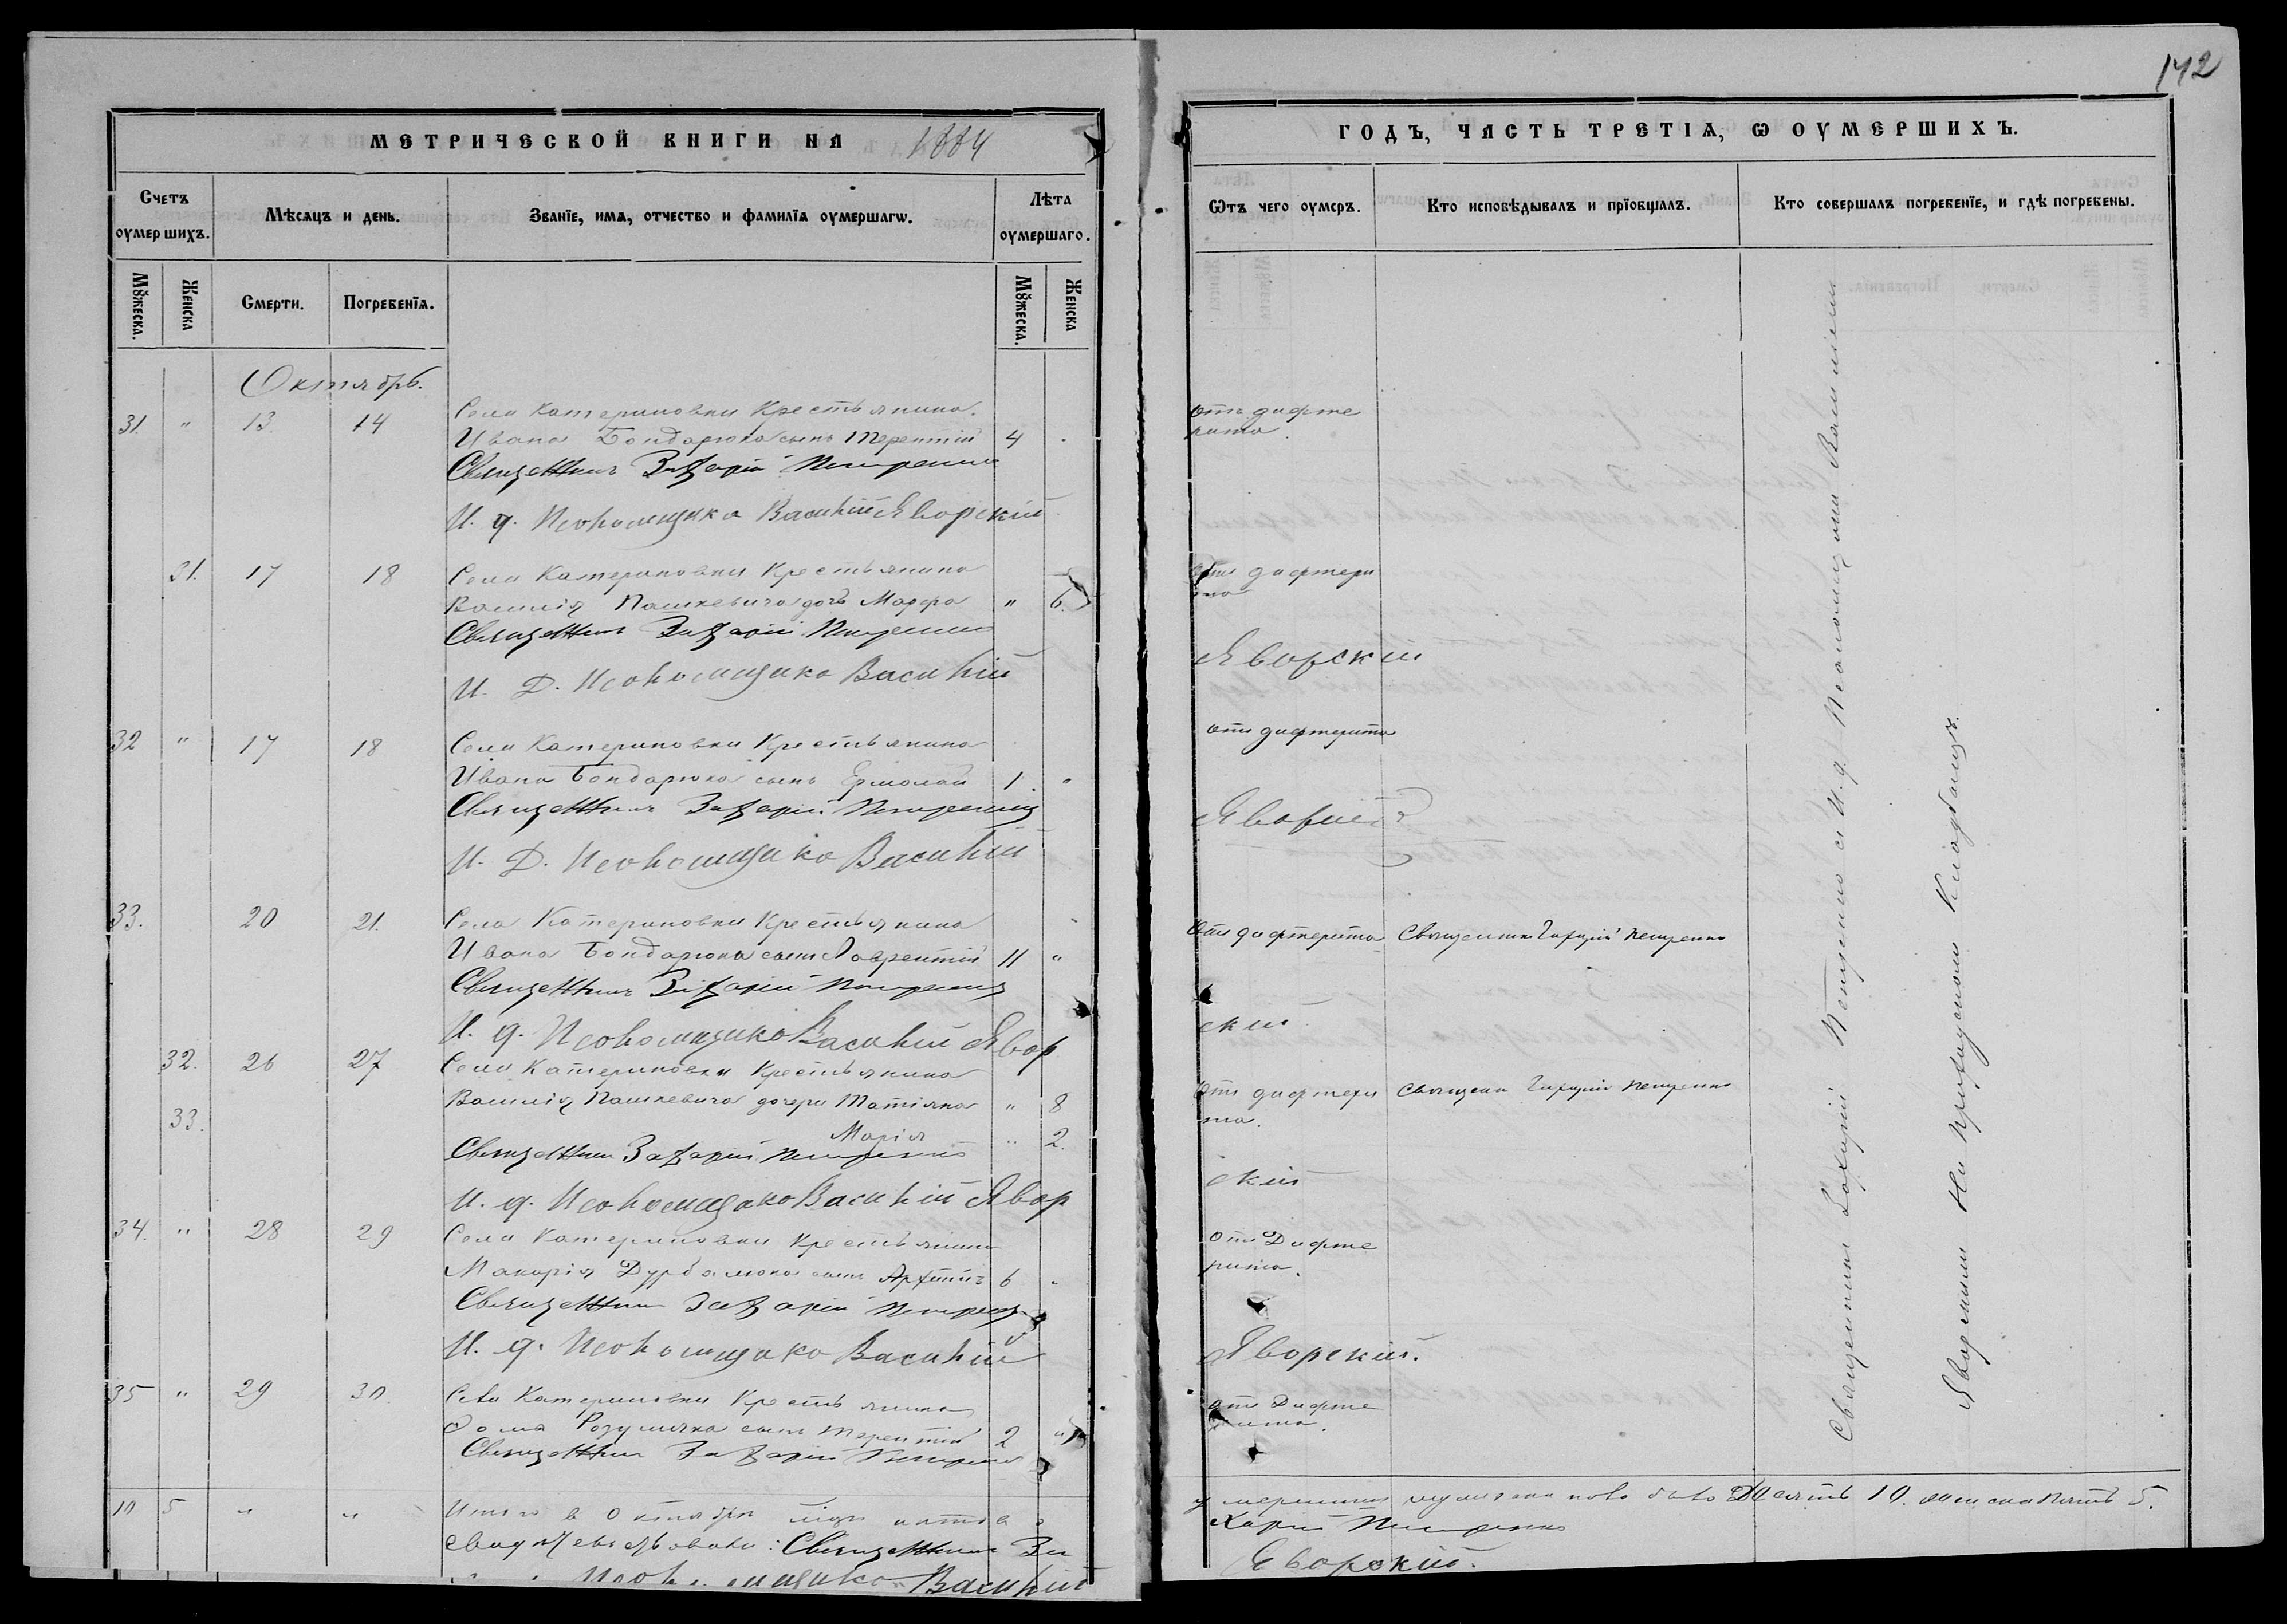 142
МЕТРИЧЕСКОЙ КНИГИ НА 1884
ГОДЪ, ЧАСТЬ ТРЕТІѦ, Ѡ ОУМЕРШИХЪ.
Счетъ оумершихъ.
Мѣсѧцъ и день.
Званїе, имѧ, отчество и фамилїѧ оумершагѡ.
Лѣта оумершаго.
Ѿтъ чего оумеръ.
Кто исповѣдывалъ и прїобщалъ.
Кто совершалъ погребенїе, и гдѣ погребены.
Мꙋжеска.
Женска
Смерти.
Погребенїѧ.
Мꙋжеска.
Женска
Октябрь.
31. " 13. 14 Села Катериновки Крестьянина
Ивана Бондарюка сынъ Терентій 4
отъ дифте
рита.
Священникъ Захарій Петренко
И. д. Псаломщика Василій Яворскій
31. 17 18 Села Катериновки Крестьянина
Василія Пашкевича дочь Марфа " 6.
отъ дифтери
та
Священникъ Захарій Петренко
И. Д. Псаломщика Василій Яворскій
32 " 17 18 Села Катериновки Крестьянина
Ивана Бондарюка сынъ Ермолай 1. "
отъ дифтерита
Священникъ Захарій Петренко
И. Д. Псаломщика Василій Яворскій
33. 20 21. Села Катериновки Крестьянина
Ивана Бондарюка сынъ Лаврентій 11 "
отъ дифтерита Священникъ Захарій Петренко
Священникъ Захарій Петренко
И. д. Псаломщика Василій Яворскій
32. 26 27 Села Катериновки Крестьянина
Василія Пашкевича дочери Татіяна " 8
отъ дифтери
та.
Священ Захарій Петренко
33. Марія " 2.
Священникъ Захарій Петренко
И. д. Псаломщика Василій Яворскій
34. " 28 29 Села Катериновки Крестьянина
Макарія сынъ 6
отъ Дифте
рита.
Священникъ Захарій Петренко
И. д. Псаломщика Василій Яворскій.
35 " 29 30. Села Катериновки Крестьянина
сынъ Терентій 2 "
отъ Дифте
рита.
Священникъ Захарій Петренко
10 5 " " Итого в Октябрѣ
умершихъ мужеска пола было Десять 10. женска пять 5.
свидѣтельствовали: Священникъ За
харій Петренко
Псаломщика Василій Яворскій.
Священникъ Захарій Петренко съ И. д. Псаломщикомъ Василіемъ
Яворскимъ На приходскомъ Кладбищѣ.